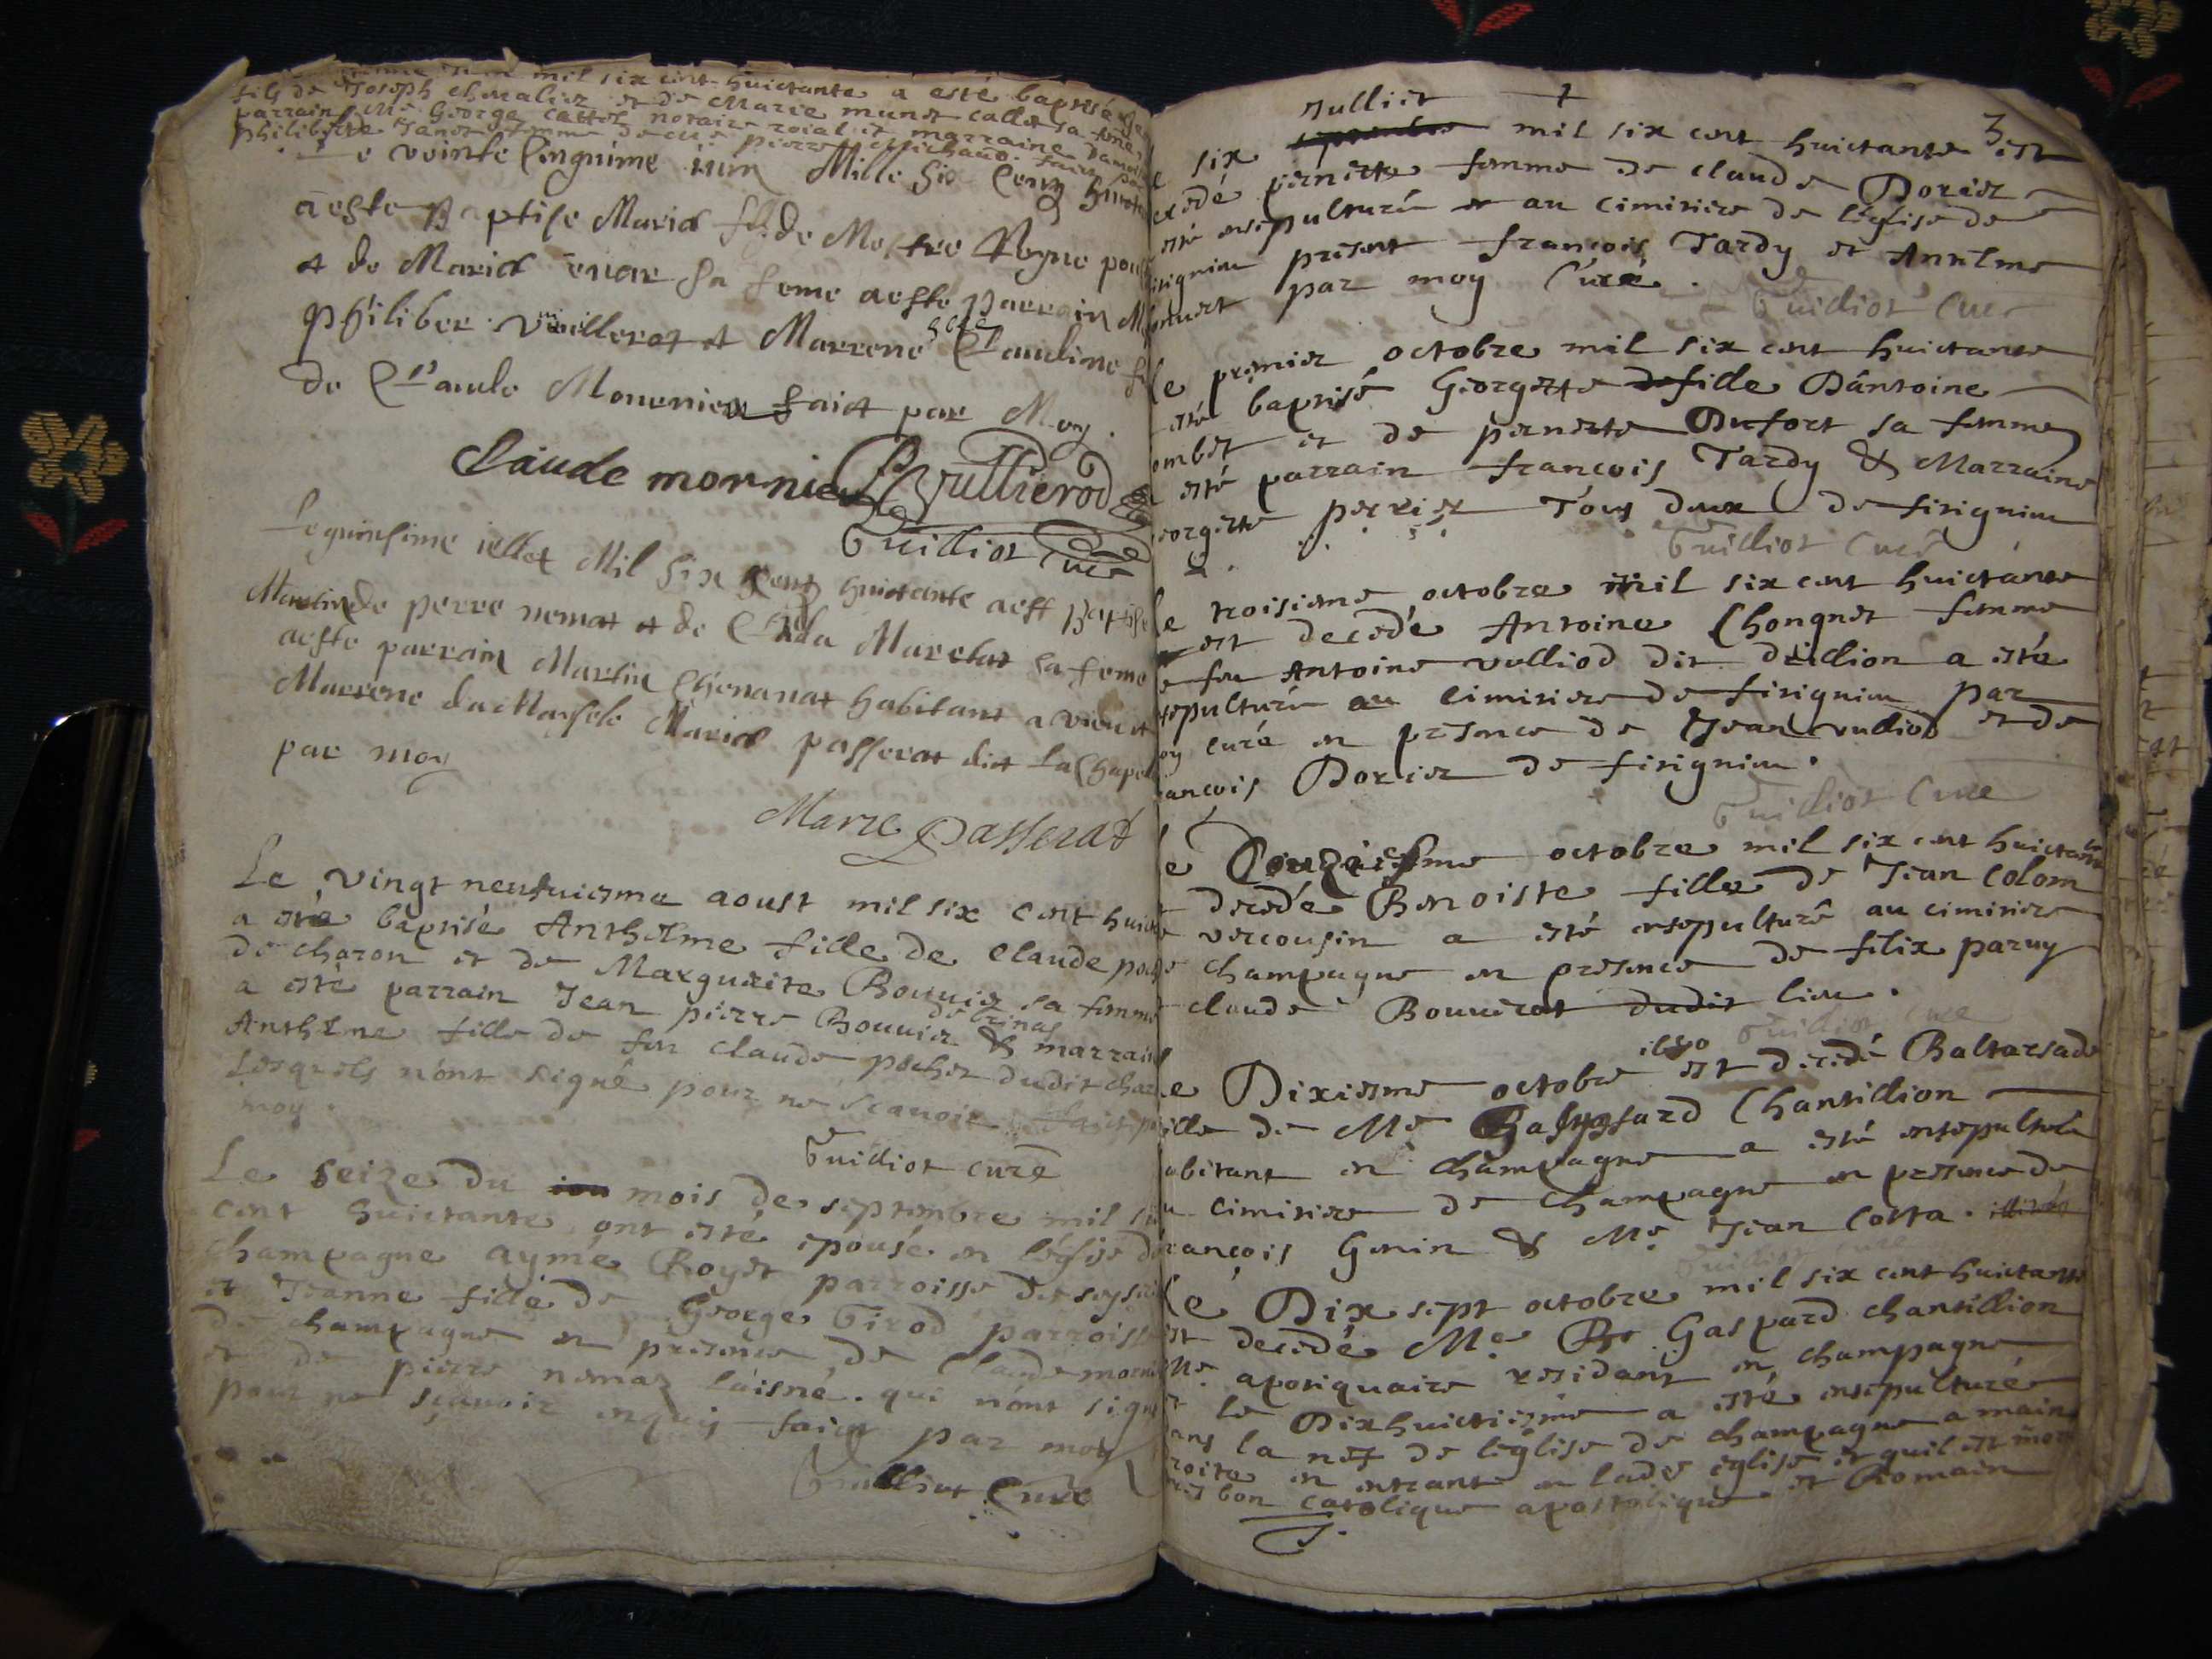 mil six cent huictante a esté baptisé
fils de Joseph chevalier et de Marie munet callet sa feme
parrain Me George castel notaire roial et marraine damoi
philiberte Janet femme de Me pierre Michaud. faict par
Le veinte cinquime iuin Mille Six Cents huict
a este Baptise Maria fi. de Mestre
et de Maria sa feme a este parrain M
philiber vuillerot et Marrene Claudine fi
de Claude Mounier faict par Moy.
Claude mornieu Vullierod
Guilliot Curé
Le quinsime iellet Mil Six Cents huictante a est Baptise
Martin de perre nemat et de Clauda Maretat sa feme
a este parrain Martin Chenanat habitant a vieu et
Marrene damaisele Maria passerat dict la Chapel
par moy
Marie Passerat
Le vingt neufuiesme aoust mil six cent huict
a este baptisé Anthelme fille de Claude poch
de charon et de Marguerite Bouvier sa femme
a esté parrain Jean pierre Bouvier & marrain
de brinas
Anthelme fille de feu claude pochet dudit char
Lesquels n'ont signé pour ne scavoir faict p
moy.
Guilliot curé
Le seize du iou mois de septembre mil si
cent huictante ont esté épousé en l'église de
Champagne aymé Royet parroisse de seyssi
et Jeanne fille de George Girod parroisse
de champagne en presence de Claude morni
et de pierre nemaz l'aisné. qui n'ont signé
pour ne sçavoir enquis faict par moy
Guilliot Curé
3
Julliet
e six septembre mil six cent huictante est
ecedé pernette femme de claude Dorier
esté ensepulturée et au cimitiere de l'église de
irignieu present françois Tardy et Antelme
par moy Curé.
Guilliot Curé
le premier octobre mil six cent huictante
esté baptisé Georgette de fille D'antoine
ombet et de pernette Dufort sa femme
a esté parrain françois Tardy & Marraine
eorgette perrier Tous deux de firignieu
Guilliot Curé
le troisieme octobre mil six cent huictante
est decedé Antoine Chongnet femme
e feu Antoine vulliod dit drillion a esté
sepulturée au cimitiere de firignieu par
oy curé en presence de Jean vulliod et de
ançois Dorier de firignieu.
Guilliot Curé
e octobre mil six cent huictante
decedé Benoiste fille de Jean Colom
e vercousin a esté ensepulturé au cimitiere
e champagne en presence de felix paruy
claude Bouvierat dudit lieu.
1680 Guilliot Curé
e Dixiesme octobre est decedé Baltarsade
ille de Me Gaspard Chantillion
abitant en champagne a esté ensepulturée
u cimitiere de champagne en presence de
rançois Genin & Me Jean Costa.
Guilliot curé
Le Dix sept octobre mil six cent huictante
est decedé Me Gaspard chantillion
Me apotiquaire residant en champagne
et le Dixhuictiesme a esté ensepulturé
ans la nef de l'église de champagne a main
roite en entrant en lade église et quil est mor
bon catolique apostolique et Romain